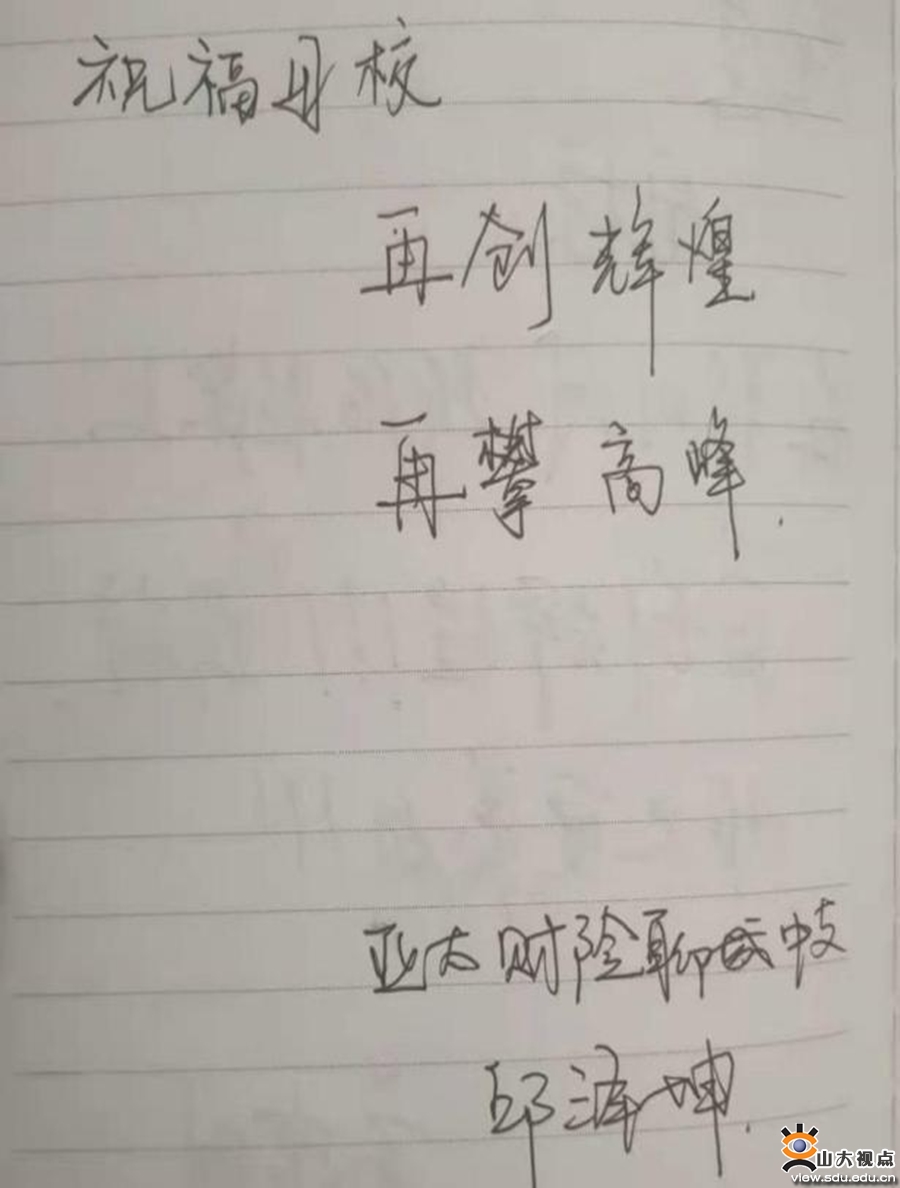 祝福母校
再创辉煌
再攀高峰.
亚太财险聊城中支
邱泽坤.
山大视点
view.sdu.edu.cn